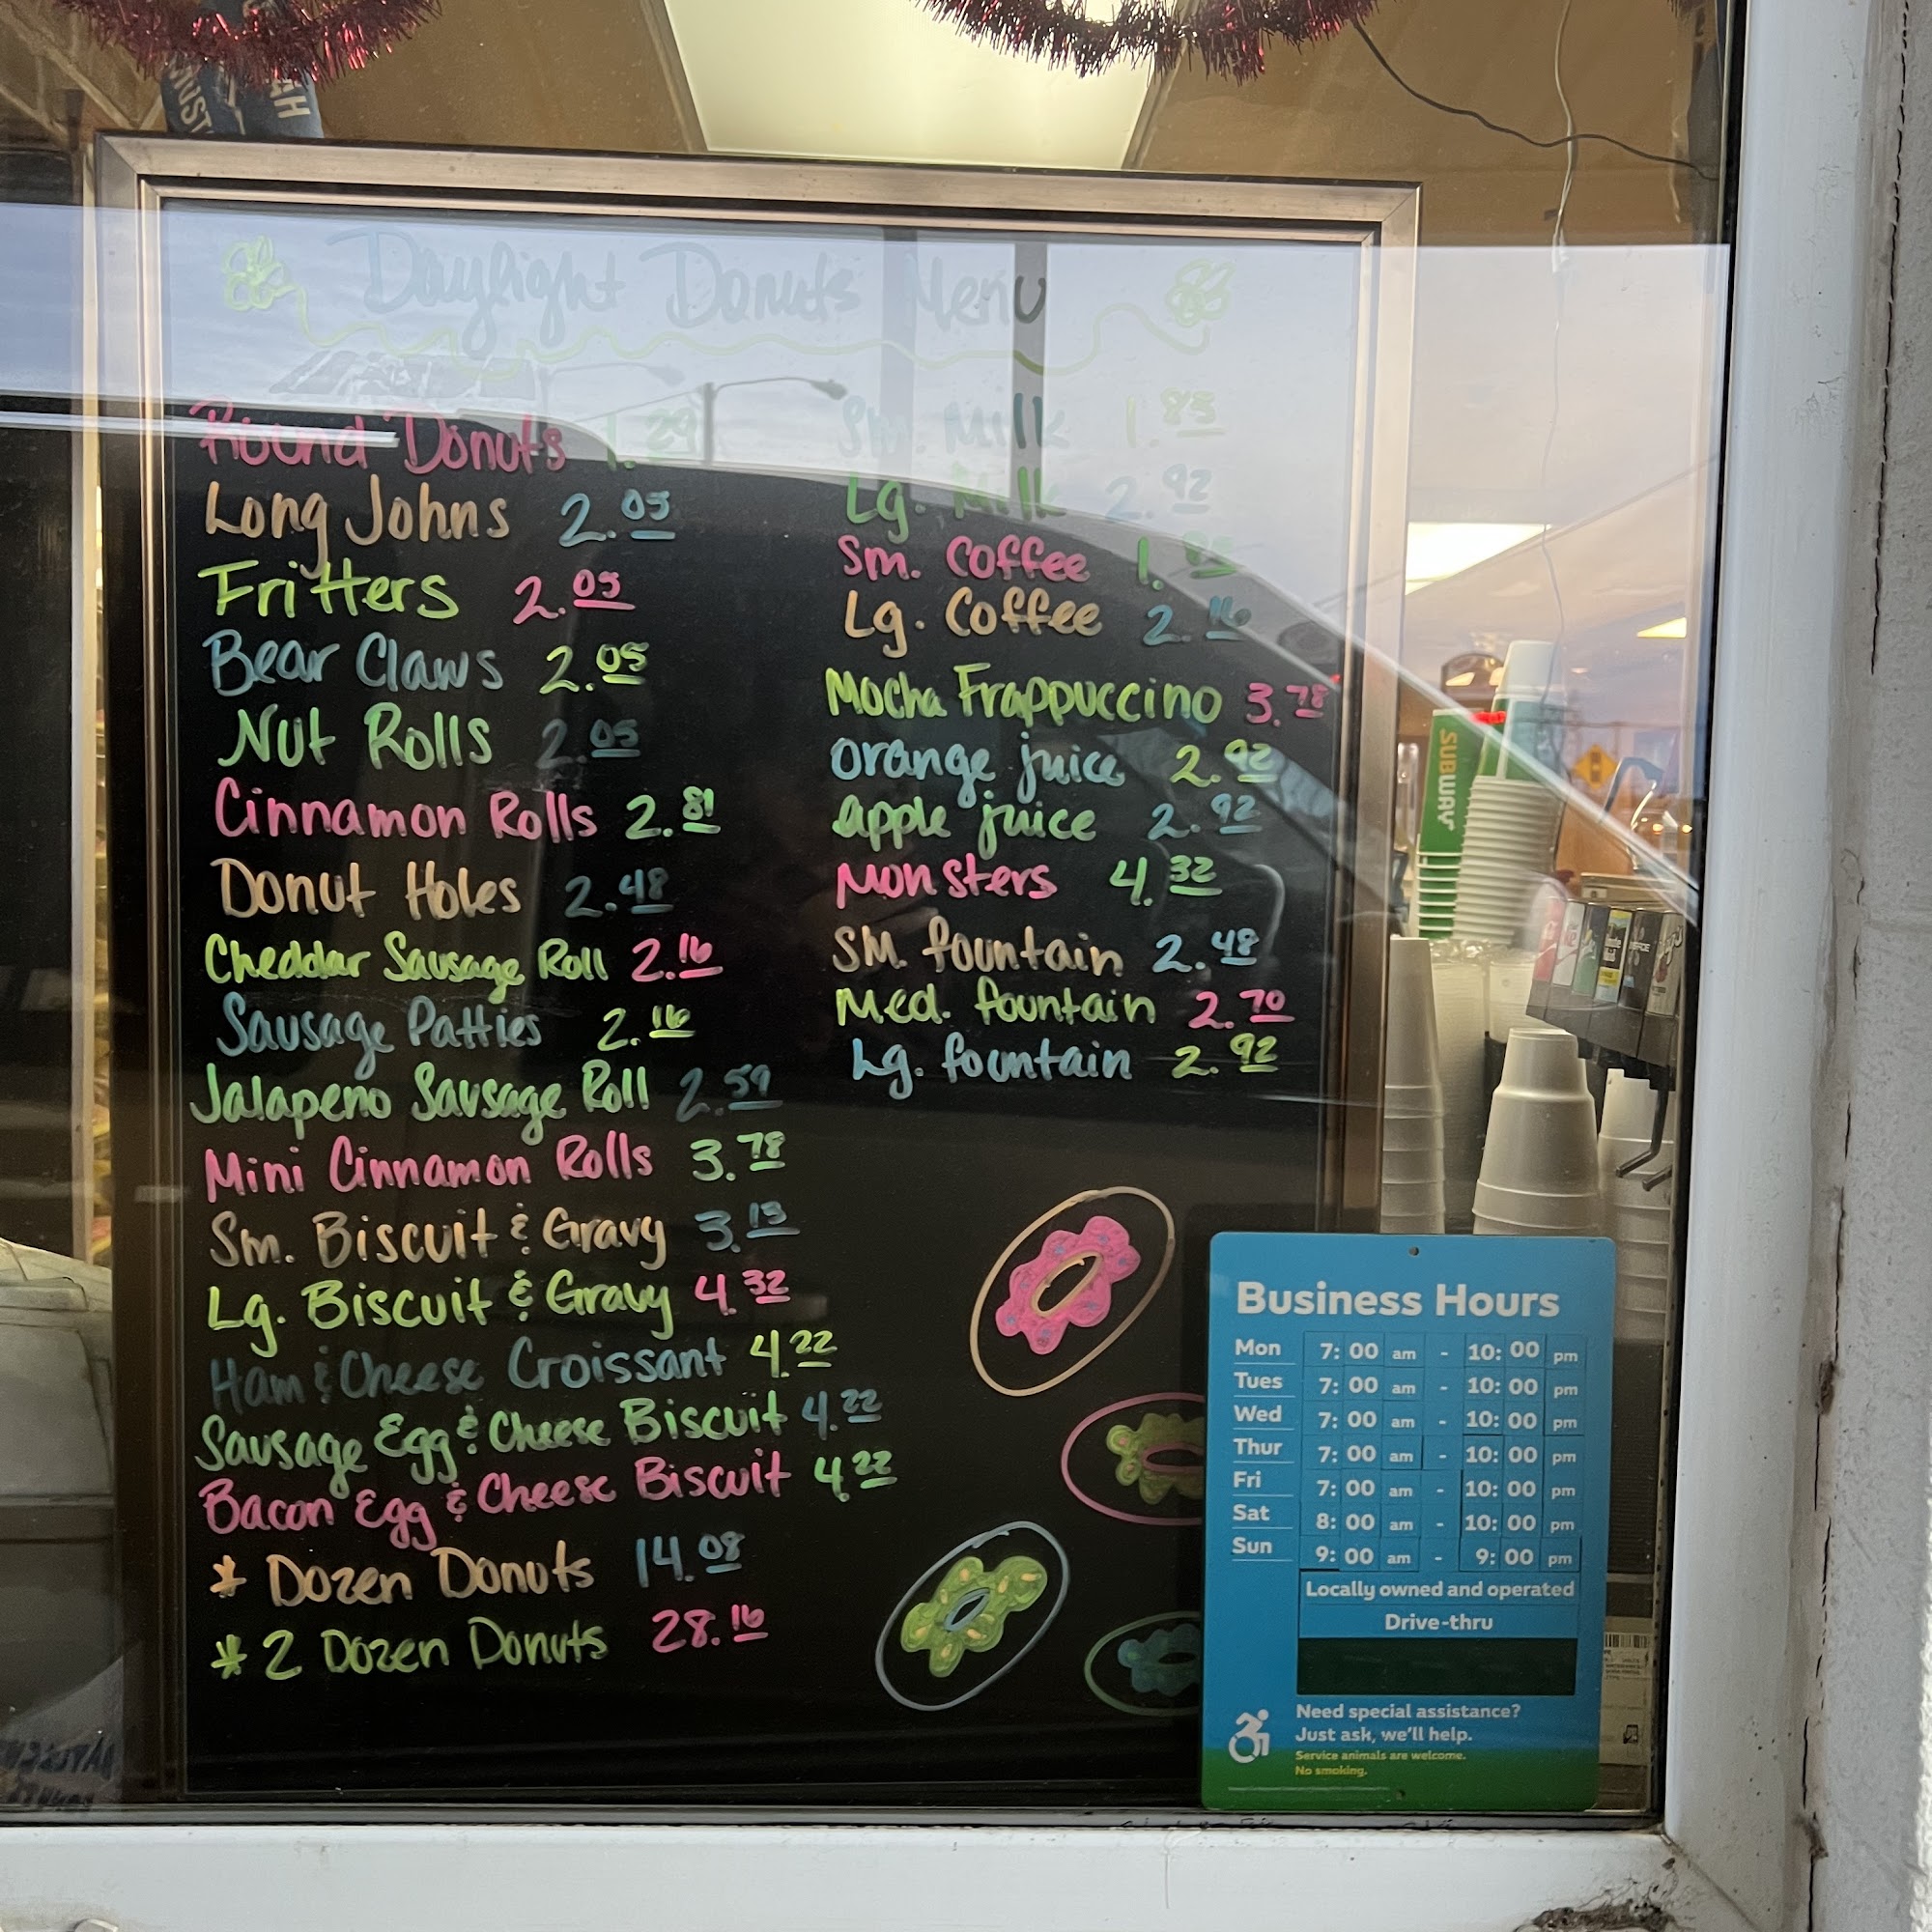 Daylight Donuts Menu
Round Donuts 1.29
Long Johns 2.05
Fritters 2.05
Bear Claws 2.05
Nut Rolls 2.05
Cinnamon Rolls 2.81
Donut Holes 2.48
Cheddar Sausage Roll 2.16
Sausage Patties 2.16
Jalapeno Sausage Roll 2.59
Mini Cinnamon Rolls 3.78
Sm. Biscuit & Gravy 3.13
Lg. Biscuit & Gravy 4.32
Ham & Cheese Croissant 4.22
Sausage Egg & Cheese Biscuit 4.22
Bacon Egg & Cheese Biscuit 4.22
* Dozen Donuts 14.08
* 2 Dozen Donuts 28.16
Sm. Milk 1.85
Lg. Milk 2.92
Sm. Coffee 1.85
Lg. Coffee 2.16
Mocha Frappuccino 3.78
orange juice 2.92
apple juice 2.92
Monsters 4.32
SM. fountain 2.48
Med. fountain 2.70
Lg. fountain 2.92
SUBWAY
Business Hours
Mon 7:00 am - 10:00 pm
Tues 7:00 am - 10:00 pm
Wed 7:00 am - 10:00 pm
Thur 7:00 am - 10:00 pm
Fri 7:00 am - 10:00 pm
Sat 8:00 am - 10:00 pm
Sun 9:00 am - 9:00 pm
Locally owned and operated
Drive-thru
Need special assistance?
Just ask, we'll help.
Service animals are welcome.
No smoking.